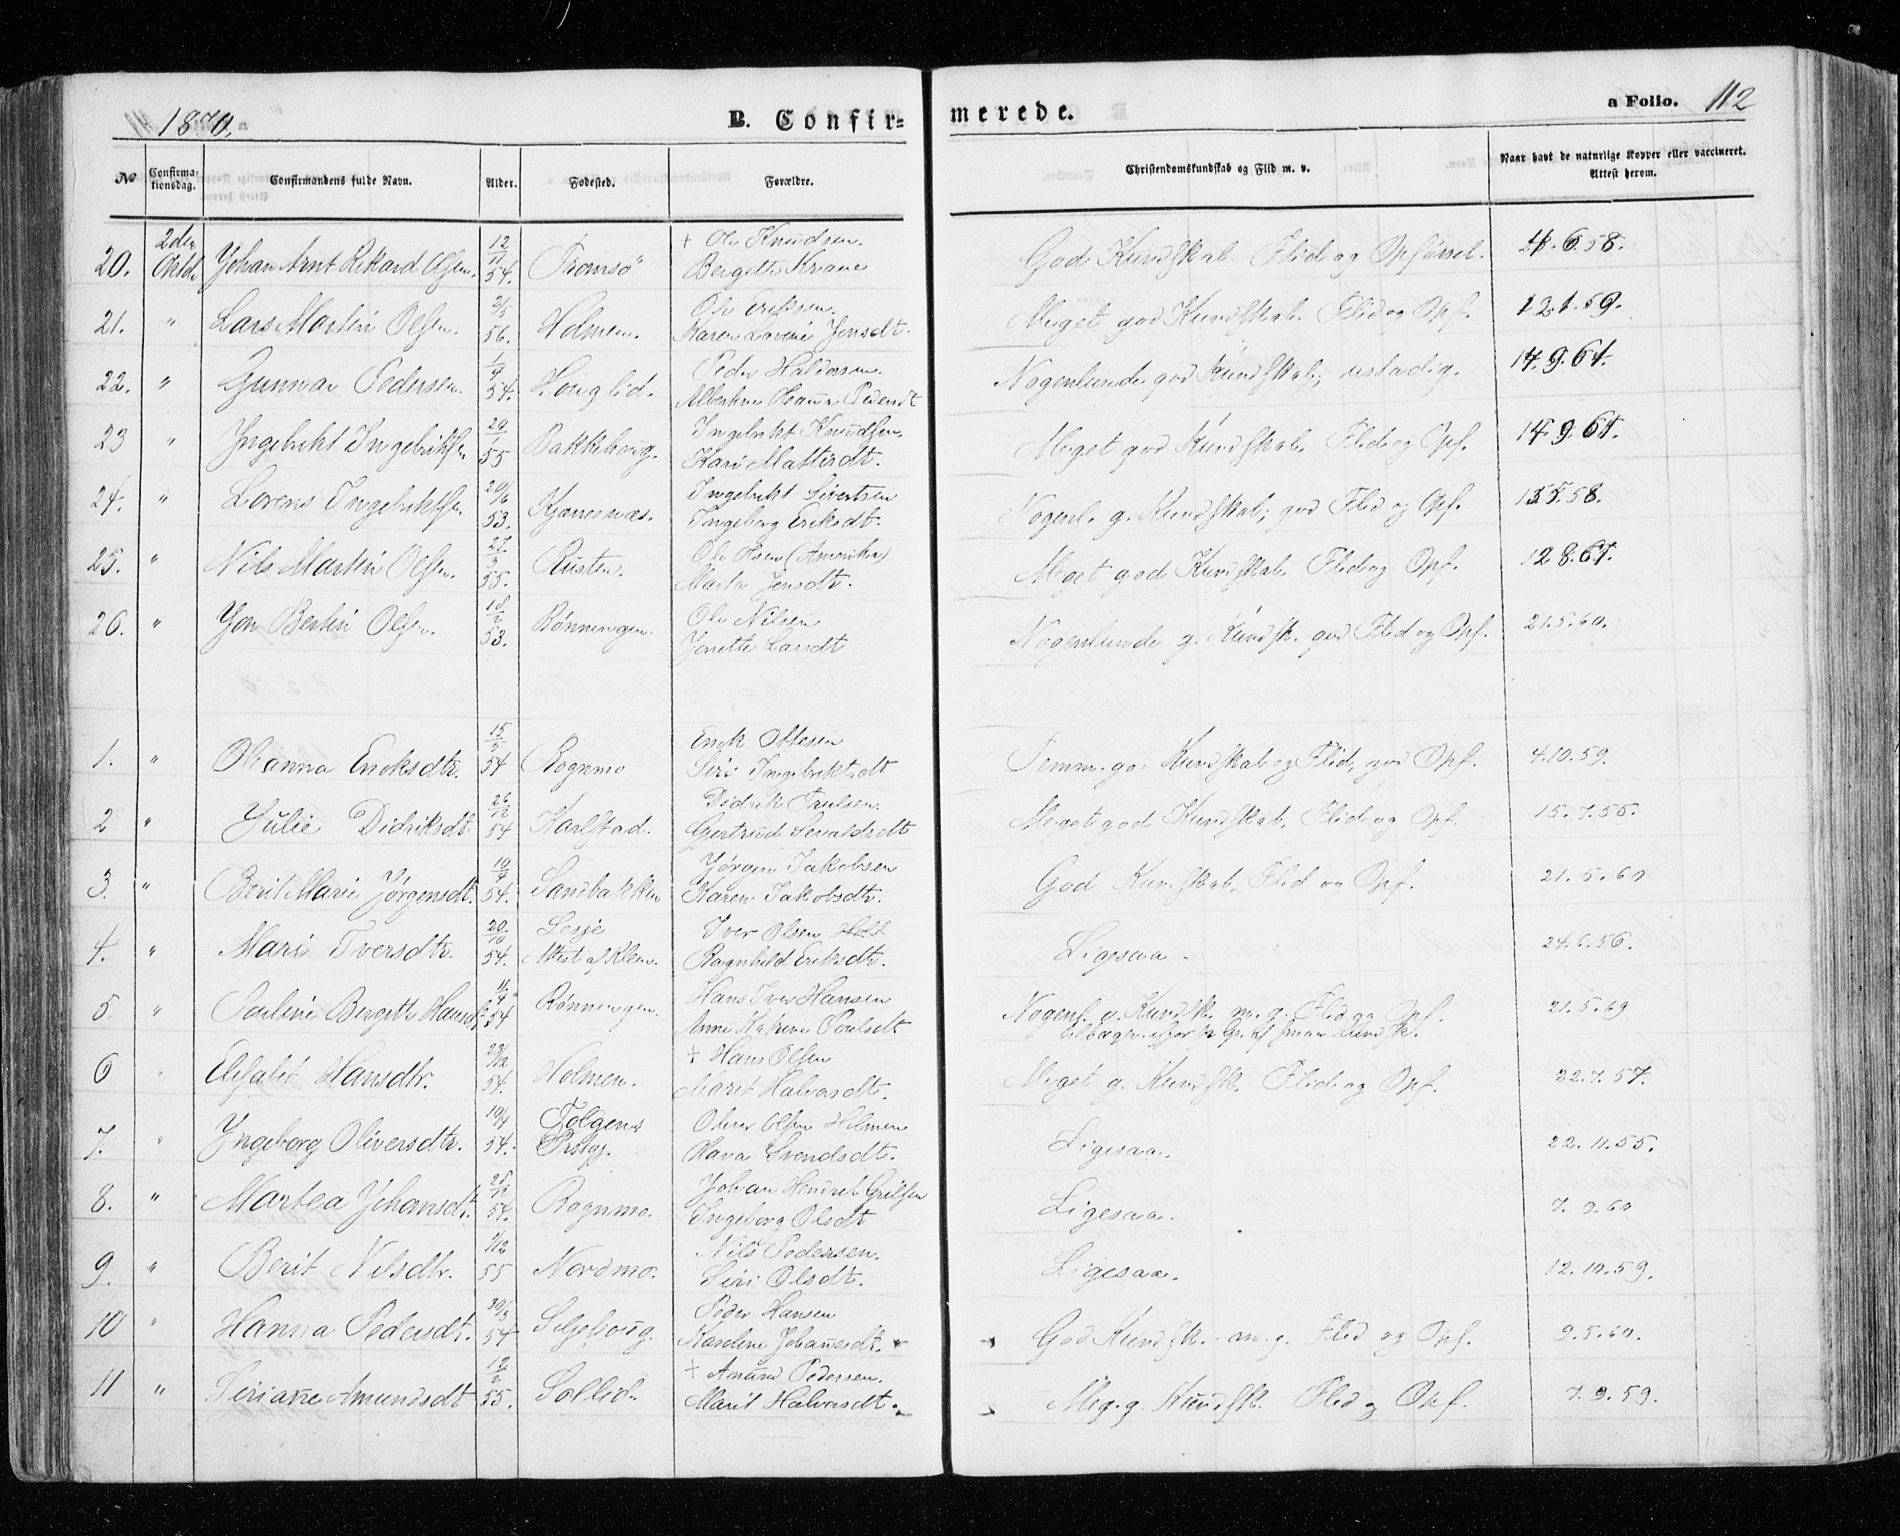 1870. B. Confirmerede. a Folio. 112
No Confirmationsdag. Confirmandens fulde Navn. Alder. Fødested. Forældre. Christendomskundskab og Flid m. v. Naar havt de naturlige Kopper eller vaccineret. Attest herom.
20. 2den Oktbr Johan Arnt Rikard Olsen. 12/11 54. Tromsø + Ole Knudsen. Bergitte Krane God Kundskab. Flid og Opførsel. 4.6.58.
21. " Lars Martin Olsen. 2/5 56. Holmen. Ole Eriksen. Karen Lovine Jonsdt. Meget god Kundskab. Flid og Opf. 12.1.59.
22. " Gunnar Pedersen. 1/4 54. Houglid. Peder Haldorsen. Albertine Hanna Pedersdt Nogenlunde god Kundskab; ustadig. 14.9.61.
23 " Ingebrikt Ingebriktsen 29/1 55 Bakkehoug. Ingebrikt Knudsen. Kari Mattisdt. Meget god Kundskab. Flid og Opf. 14.9.61.
24. " Lorens Ingebriktsen. 20/6 53. Kjønesnæs. Ingebrikt Sivertsen Ingeborg Eriksdt. Nogenl. g. Kundskab; god Flid og Opf. 58.
25. " Nils Martin Olsen. 27/3 55. Rusten. Ole Olsen (Amerika) Marte Jensdt. Meget god Kundskab. Flid og Opf. 12.8.61.
26. " Jon Bertin Olsen. 18/2 53. Rønningen. Ole Nilsen Jonette Larsdt Nogenlunde g. Kundsk. god Flid og Opf. 21.5.60.
1. " Oleanna Eriksdtr. 15/5 54 Rognmo Erik Ottesen Siri Ingebriktsdt Temm. go. Kundskab og Flid, god Opf. 4.10.59.
2 " Julie Didriksdt 26/12 54 Karlstad. Didrik Trulsen. Gertrud Sevaldsdt Meget god Kundskab, Flid og Opf. 15.7.55.
3. " Berit Marie Jørgensdt. 10/9 54. Sandbakken Jørgen Jakobsen Karen Jakobsdtr. God Kundskab, Flid og Opf. 21.5.60
4. " Mari Iversdtr. 20/10 54. Lesje Attest af Klem. Iver Olsen Holt Ragnhild Eriksdtr. Ligesaa. 24.6.56.
5 " Pauline Bergitte Hansdt. 11/4 54 Rønningen. Hans Iver Hansen Anne Katrine Paulsdt Nogenl. g. Kundsk. m. g. Flid og Opf. 21.5.69
6 " Elisabet Hansdtr. 29/12 54. Holmen. + Hans Olsen Marit Halvorsdt. Meget g. Kundsk. Flid og Opf. 22.7.57.
7. " Ingeborg Oliversdtr. 10/4 54. Tolgens Prstgj. Oliver Olsen Holmen Hava Svendsdt. Ligesaa. 22.11.55.
8. " Martea Johansdt. 54. Rognmo. Johan Hendrik Ingeborg Olsdt Ligesaa. 7.9.60
9. " Berit Nilsdtr. 1/12 55 Nordmo. Nils Pedersen. Siri Olsdt. Ligesaa. 12.10.59.
10 " Hanna Pedersdt. 30/3 54 Seljehoug. Peder Hansen Karoline Johannesdt. God Kundsk. m. g. Flid og Opf. 9.5.60.
11 " Sirianne Amundsdt 19/2 55. Sollid. + Amund Pedersen. Marit Halvorsdt. Meg. g. Kundsk. Flid og Opf. 7.9.59.